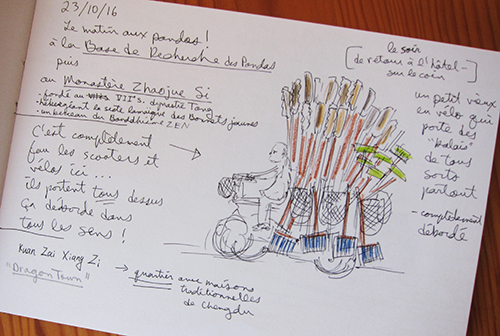 23/10/16
Le matin aux pandas !
à la Base de Recherche des Pandas
puis
au Monastère Zhaojue Si
- fondé au VIIe s. dynastie Tang
- hébergeant la secte lunaique des Bonnets jaunes
- un berceau du Bouddhisme ZEN
C'est complètement
fou les scooters et
vélos ici ...
ils portent tous dessus
ça déborde dans
tous les sens !
Kuan Zai Xiang Zi
"Dragon Town"
→ quartier avec maisons
traditionnelles
de Chengdu
le soir
[de retour à l'hôtel -]
sur le coin
un petit vieux
en vélo qui
porte des
"balais"
de tous
sorts
partout
- complètement
débordé